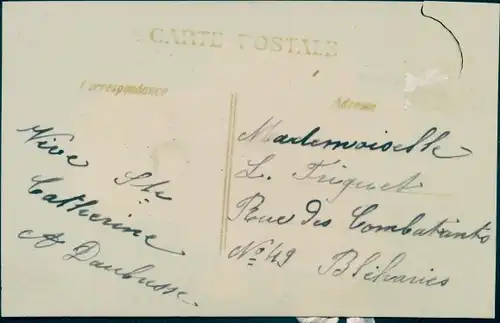 CARTE POSTALE
Correspondance
Adresse
Vive Ste
Catherine
A Daubresse
Mademoiselle
L. Triquet
Rue des Combatants
No 49 Bléharies